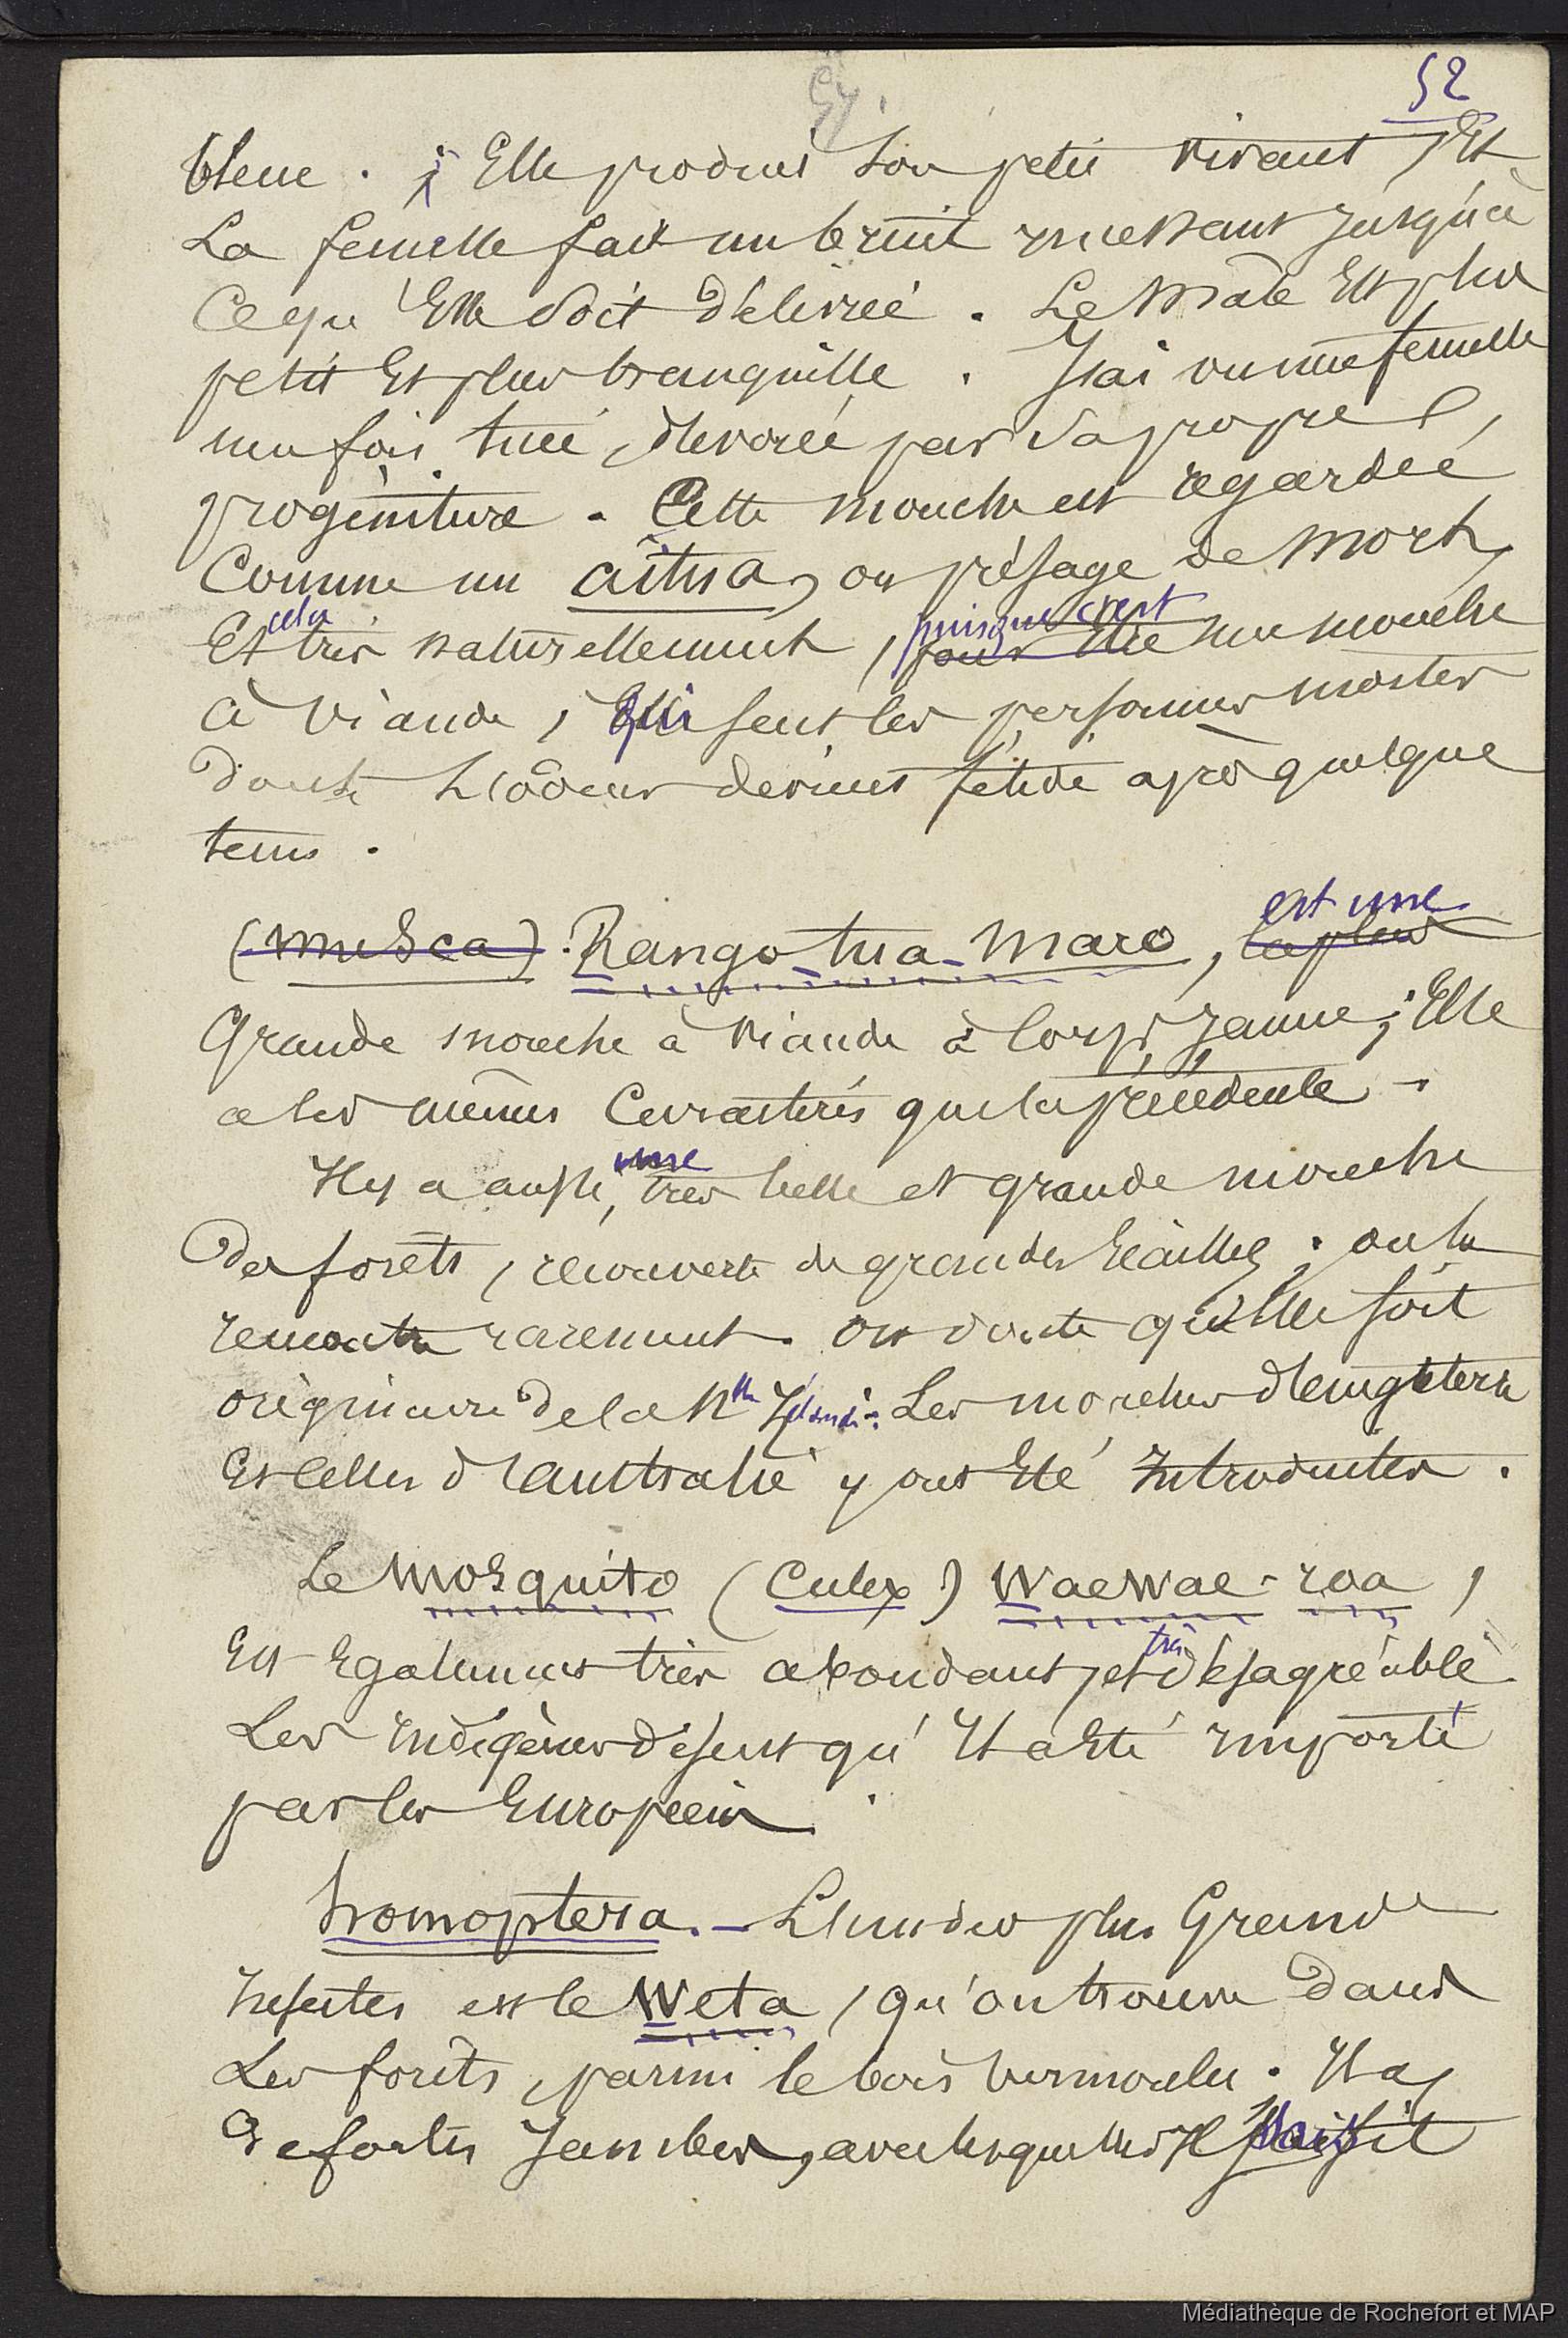 52
bleue . ; Elle produit son petit vivant, Et
La femelle fait un bruit incessant Jusqu'à
Ce qu'Elle soit délivrée . Le Mâle Est plus
petit Et plus tranquille . J'ai vu une femelle
une fois tuée, dévorée par sa propre
progéniture . Cette mouche est regardée
Comme un aïtua, ou présage de Mort,
Et cela très naturellement, puisque c'est pour être une mouche
à Viande, qui sent les personnes mortes
dont l'odeur devient fétide après quelque
tems .
(musca). Rango-tua-maro, est une la plus
Grande mouche à viande à Corps Jaune ; Elle
a les mêmes Caractères que la précédente .
Il y a aussi, une très belle et grande mouche
Des forêts, recouverte de grandes Ecailles ; on la
rencontre rarement. On doute qu'elle soit
originaire de la Nlle Zélande. Les mouches d'Engleterre
Et Celles d'Australie y ont Eté Introduites .
Le Mosquito (Culex) Waewae-roa,
Est Egalement très abondant, et très désagréable.
Les Indigènes disent qu'Il a Eté importé
par les Européens .
homoptera. - L'un des plus Grands
Insectes est le Weta, qu'on trouve dans
Les forêts, parmi le bois vermoulu . Il a,
De fortes Jambes, avec lesquelles Il saisit
Médiathèque de Rochefort et MAP